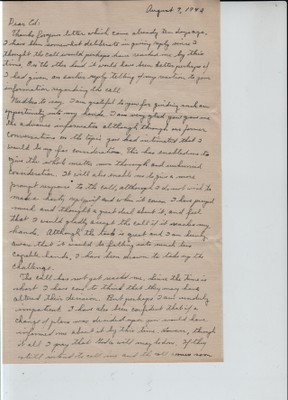 August 7, 1942
Dear Ed:
Thanks for your letter which came already ten days ago,
I have been somewhat deliberate in giving reply since I
thought the call would perhaps have reached me by this
time. On the other hand it would have been better perhaps if
I had given an earlier reply telling of my reaction to your
information regarding the call.
Needless to say I am grateful to you for giving such an
opportunity into my hands. I am very glad you gave me
the advance information although through our former
conversations on the topic you had intimated that I
would be up for consideration. This has enabled me to
give the whole matter more thorough and unhurried
consideration. It will also enable me to give a more
prompt answer to the call, although I do not wish to
make a hasty reply if and when it comes. I have prayed
much and thought a great deal about it, and feel
that I would gladly accept the call if it reaches my
hands. Although the task is great and I am keenly
aware that it would be falling into much less
capable hands, I have been drawn to take up the
challenge.
The call has not yet reached me. Since the time is
short I have come to think that they may have
altered their decision. But perhaps I am unduly
impatient. I have also been confident that if a
change of plans was decided upon you would have
informed me about it by this time. However, through
it all I pray that God's will may be done. If they
still intend to call me and the call comes soon